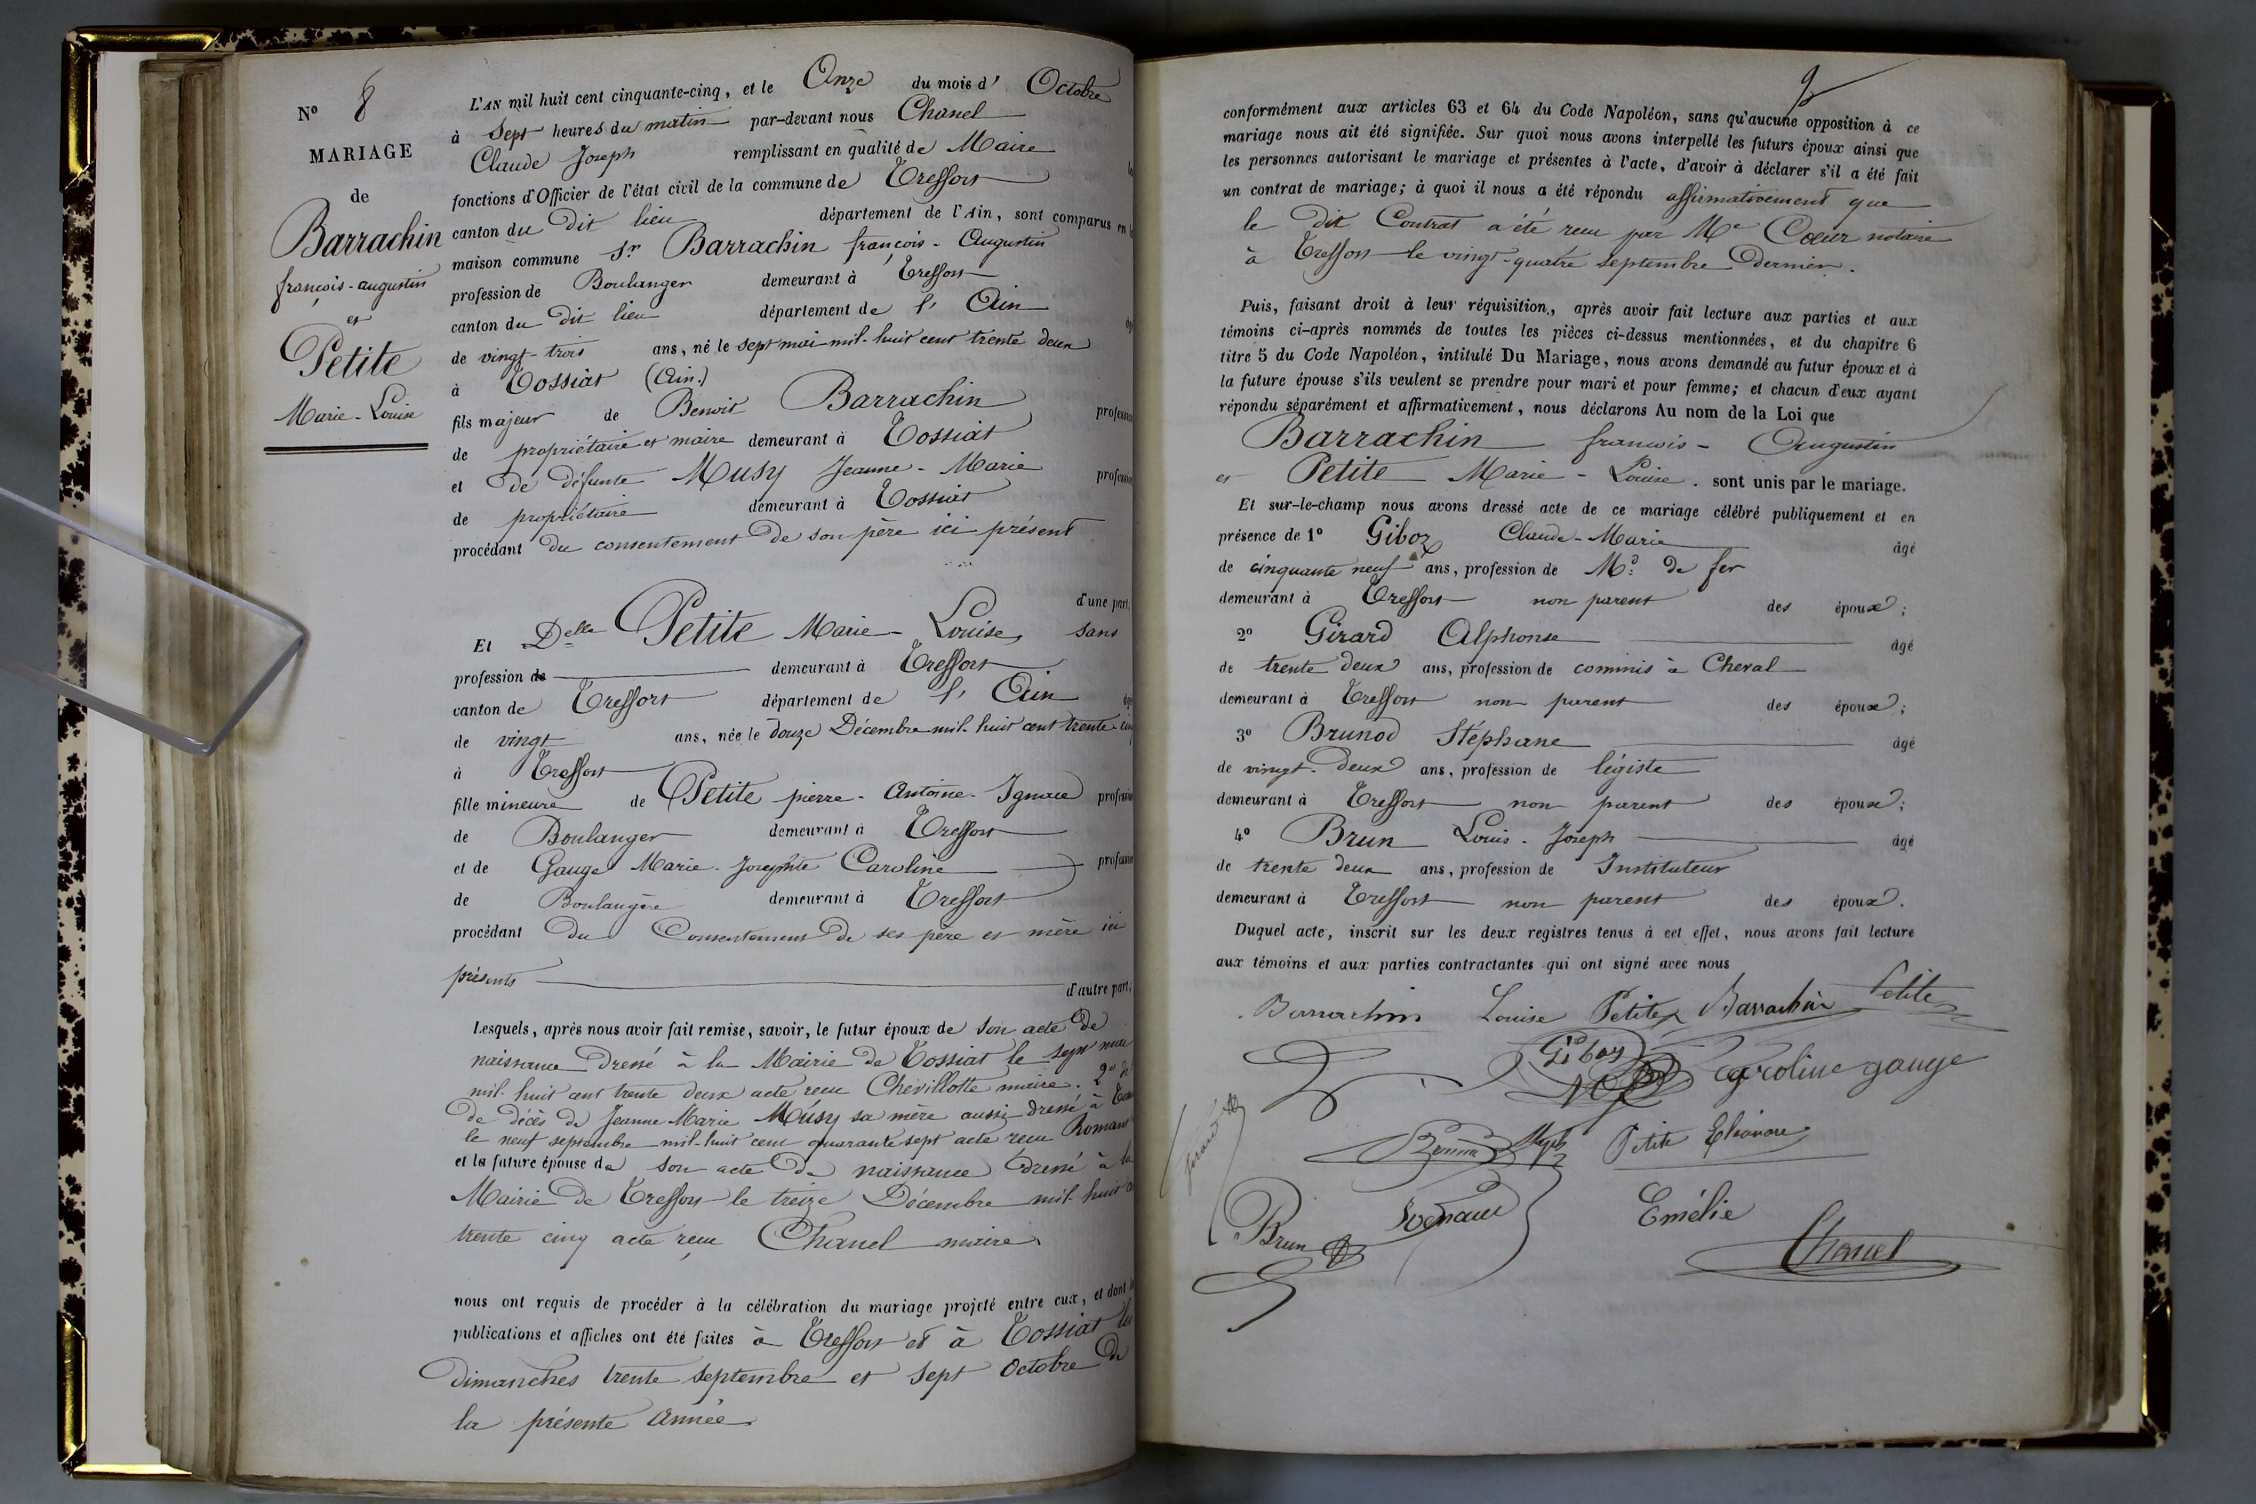 N° 8
MARIAGE
de
Barrachin
françois-augustin
et
Petite
Marie-Louise
L'AN mil huit cent cinquante-cinq, et le Onze du mois d' Octobre
à Sept heures du matin par-devant nous Chanel
Claude Joseph remplissant en qualité de Maire
fonctions d'Officier de l'état civil de la commune de Treffort
canton du dit lieu département de l'Ain, sont comparus en
maison commune Sr Barrachin françois-Augustin
profession de Boulanger demeurant à Treffort
canton du dit lieu département de l' Ain
de vingt-trois ans, né le sept mai mil-huit cent trente deux
à Tossiat (Ain.)
fils majeur de Benoit Barrachin
de propriétaire et maire demeurant à Tossiat
et de défunte Musy Jeanne-Marie
de propriétaire demeurant à Tossiat
procédant du consentement de son père ici présent
d'une part,
Et Delle Petite Marie-Louise, sans
profession de demeurant à Treffort
canton de Treffort département de l' Ain
de vingt ans, née le douze Décembre mil-huit cent trente-cinq
à Treffort
fille mineure de Petite pierre-Antoine-Ignace
de Boulanger demeurant à Treffort
et de Gauge Marie-Josephte Caroline
de Boulangère demeurant à Treffort
procédant du Consentement de ses père et mère ici
présents d'autre part;
Lesquels, après nous avoir fait remise, savoir, le futur époux de son acte de
naissance dressé à la Mairie de Tossiat le sept mai
mil-huit cent trente deux acte reçu Chevillotte maire. 2° de
de décès de Jeanne Marie Musy sa mère aussi dressé à
le neuf septembre mil-huit cent quarante sept acte reçu
et la future épouse de son acte de naissance dressé à la
Mairie de Treffort le treize Décembre mil-huit
trente cinq acte reçu Chanel maire.
nous ont requis de procéder à la célébration du mariage projeté entre eux, et dont
publications et affiches ont été faites à Treffort et à Tossiat les
dimanches trente septembre et sept octobre de
la présente année
9
conformément aux articles 63 et 64 du Code Napoléon, sans qu'aucune opposition à ce
mariage nous ait été signifiée. Sur quoi nous avons interpellé les futurs époux ainsi que
les personnes autorisant le mariage et présentes à l'acte, d'avoir à déclarer s'il a été fait
un contrat de mariage; à quoi il nous a été répondu affirmativement que
le dit Contrat a été reçu par Me Coeur notaire
à Treffort le vingt-quatre septembre dernier.
Puis, faisant droit à leur réquisition, après avoir fait lecture aux parties et aux
témoins ci-après nommés de toutes les pièces ci-dessus mentionnées, et du chapitre 6
titre 5 du Code Napoléon, intitulé Du Mariage, nous avons demandé au futur époux et à
la future épouse s'ils veulent se prendre pour mari et pour femme; et chacun d'eux ayant
répondu séparément et affirmativement, nous déclarons Au nom de la Loi que
Barrachin francois-Augustin
et Petite Marie-Louise. sont unis par le mariage.
Et sur-le-champ nous avons dressé acte de ce mariage célébré publiquement et en
présence de 1° Giboz Claude-Marie âgé
de cinquante neuf ans, profession de Md de fer
demeurant à Treffort non parent des époux;
2° Girard Alphonse âgé
de trente deux ans, profession de commis à Cheval
demeurant à Treffort non parent des époux;
3° Brunod Stéphane âgé
de vingt-deux ans, profession de légiste
demeurant à Treffort non parent des époux;
4° Brun Louis-Joseph âgé
de trente deux ans, profession de Instituteur
demeurant à Treffort non parent des époux.
Duquel acte, inscrit sur les deux registres tenus à cet effet, nous avons fait lecture
aux témoins et aux parties contractantes qui ont signé avec nous
Barrachin Louise Petite Barrachin Petite
Giboz caroline gauge
Girard Petite Eléonore
Brun Emélie
Chanel